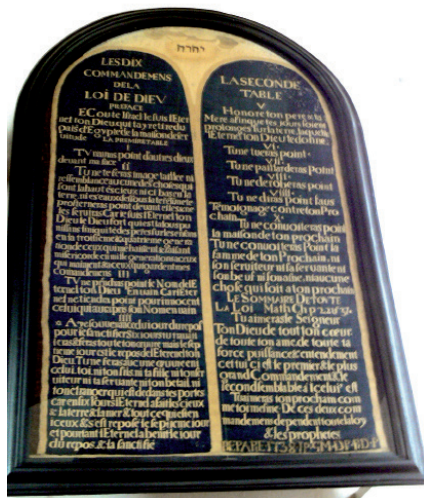 יהוה
LES DIX
COMMANDEMENS
DE LA
LOI DE DIEV
PREFACE
EScoute Israel Ie suis l'Eter
nel ton Dieu qui t'ay retiré du
païs d'Egypte de la maison de ser
uitude LA PREMIERE TABLE
I
TV n'auras point d'autres dieux
deuant ma face
II
Tu ne te feras image taillee ni
resemblance aucune des choses qui
sont là haut és cieux ni ci bas en la
terre, ni és eaux dessous la terre tu ne te
prosterneras point deuant elles & ne
les seruiras Car ie suis l'Eternel ton
Dieu le Dieu fort qui est ialoux pu
nissant l'iniquité des peres sur les enfans
en la troisieme & quatrieme genera
tion de ceux qui me haissent & faisant
misericorde en mille generations a ceux
qui m'aiment & a ceux qui gardent mes
comandemens III
TV ne prendras point le Nom de l'E
ternel ton Dieu En uain Car l'Eter
nel ne tiendra point pour innocent
celui qui aura pris son Nom en uain
IIII
Aye souuenance du iour du repos
pour le sanctifier Six iours tu trauail
leras & feras toute ton œuure mais le sep
tieme iour est le repos de l'Eternel ton
Dieu. Tu ne feras aucune œuure en
celui. toi, ni ton fils ni ta fille ni ton ser
uiteur ni ta seruante ni ton betail ni
ton estranger qui est dedans tes portes
car en six iours l'Eternel a fait les cieux
& la terre & la mer & tout ce qui est en
iceux & s'est reposé le septieme iour
et pourtant l'Eternel a benit le iour
du repos, & l'a sanctifié
LA SECONDE
TABLE
V
Honore ton pere & ta
Mere afin que tes iours soient
prolongés sur la terre, laquelle
l'Eternel ton Dieu te donne.
VI
Tu ne tueras point
VII
Tu ne paillarderas Point
VIII
Tu ne deroberas point
VIIII
Tu ne diras point faux
Temoignage contre ton Pro
chain X
Tu ne conuoiteras point
la maison de ton prochain
Tu ne conuoiteras Point la
famme de ton Prochain, ni
son seruiteur ni sa seruante ni
son beuf ni son asne, ni aucune
chose qui soit a ton prochain
LE SOMMAIRE DE TOVTE
LA LOI Math Ch p 22 v 37
Tu aimeras le Seigneur
Ton Dieu de tout ton cœur
de toute ton ame de toute ta
force puissance & entendement
cettui ci est le premier & le plus
grand Commandement & le
second semblable à icelui est
Tu aimeras ton prochain com
me toi mesme De ces deux com
mandemens dependent toute la loy
& les prophetes